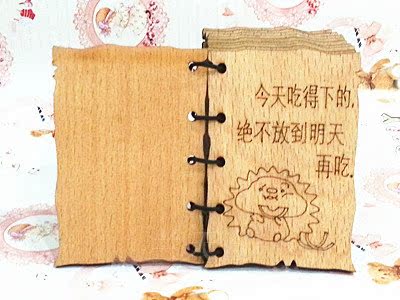 今天吃得下的.
绝不放到明天
再吃.